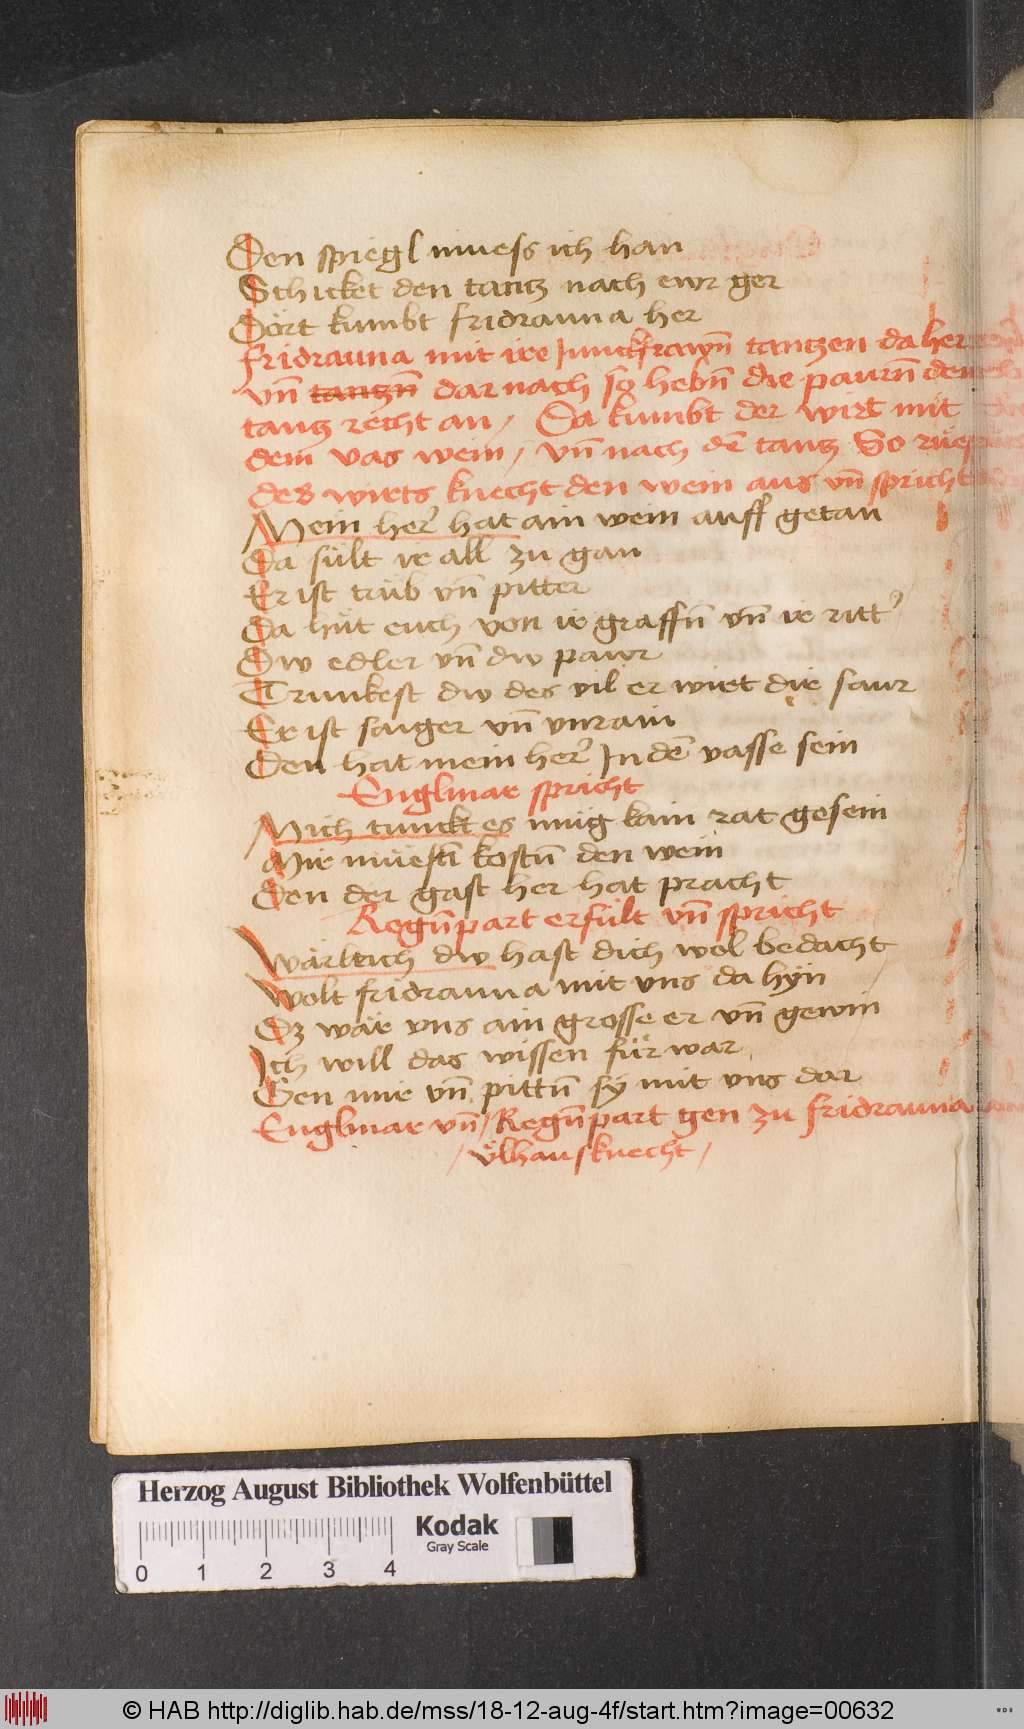 Den spiegl muess ich han
Schicket den tantz nach ewr ger
Dört kumbt fridrauna her
fridrauna mit ire Junckfrawn̄ tantzen da her
vn̄ tantzn̄ dar nach so hebn̄ die paurn̄ den
tantz recht an / Da kumbt der wirt mit
dem vas wein / vn̄ nach dē tantz So rüeft
des wirts knecht den wein aus vn̄ spricht
Mein her' hat ain wein auff getan
Da sült ir all zu gan
Er ist trüb vn̄ pitter
Da hüt euch von ir graffn̄ vn̄ ir ritt'
Dw edler vn̄ dw pawr
Trunkest dw des vil er wirt dir saur
Er ist saiger vn̄ vnrain
Den hat mein her' In dē vasse sein
Englmar spricht
Mich tunckt es müg kain rat gesein
Mir müestn̄ kostn̄ den wein
Den der gast her hat pracht
Regn̄part erfült vn̄ spricht
Wärleich dw hast dich wol bedacht
Wolt fridrauna mit vns da hyn
Dz wär vns ain grosse er vn̄ gewin
Ich will das wissen für war
Gen mir vn̄ pittn̄ sy mit vns dar
Englmar vn̄ / Regn̄part gen zu fridrauna
/ völhausknecht /
Herzog August Bibliothek Wolfenbüttel
Kodak
Gray Scale
0 1 2 3 4
© HAB http://diglib.hab.de/mss/18-12-aug-4f/start.htm?image=00632